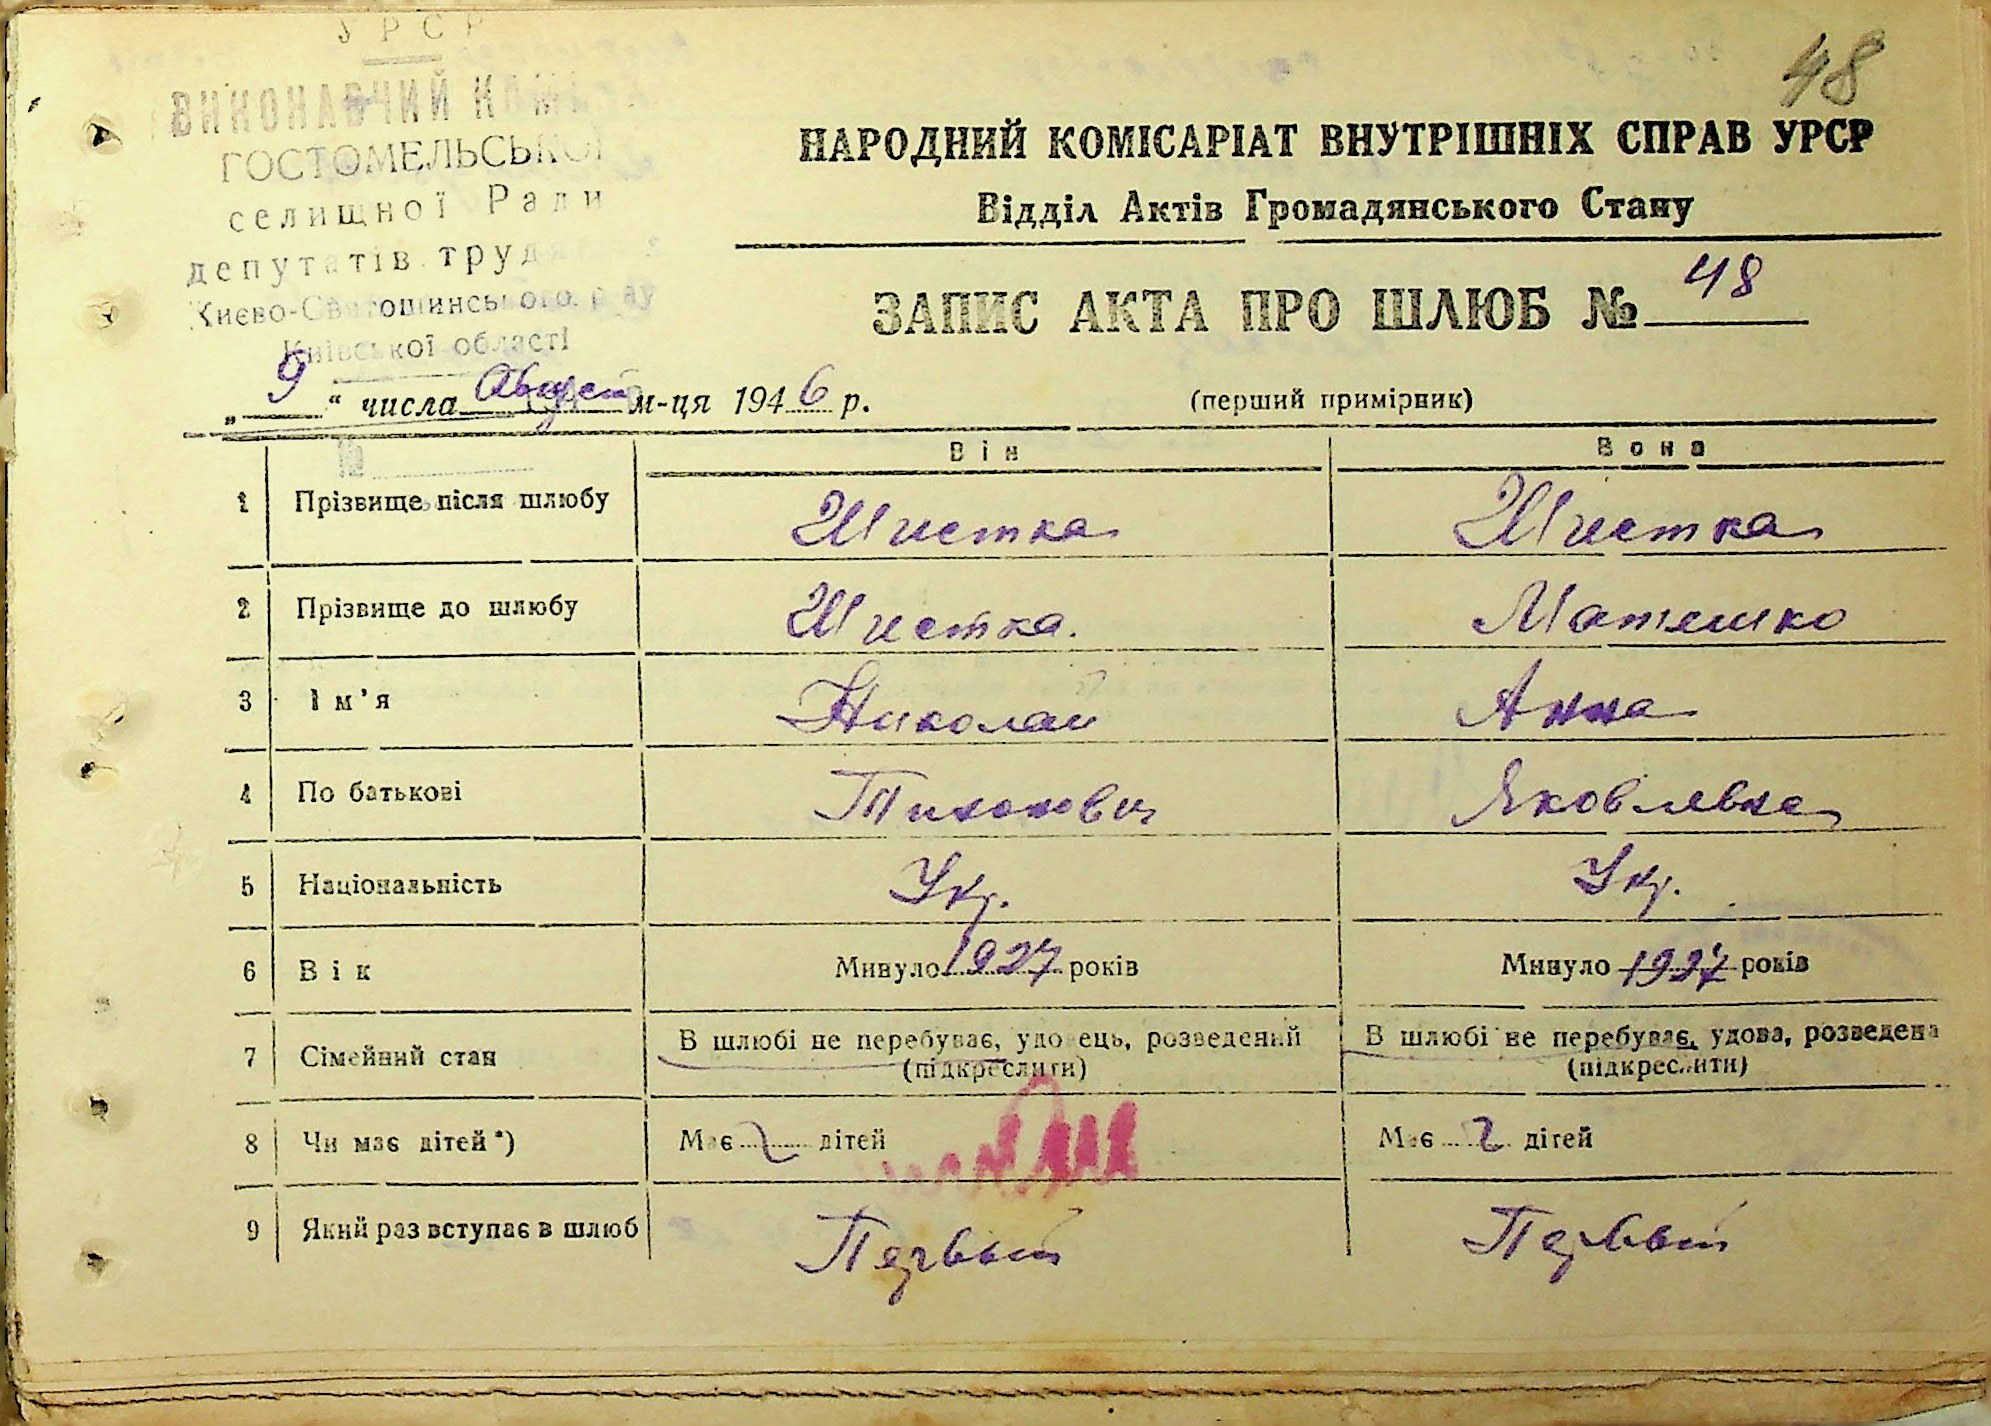 УРСР
ВИКОНАВЧИЙ КОМІ
ГОСТОМЕЛЬСЬКОЇ
селищної Ради
депутатів труд
Києво-Святошинського р-ну
Київської області
№
48
НАРОДНИЙ КОМІСАРІАТ ВНУТРІШНІХ СПРАВ УРСР
Відділ Актів Громадянського Стану
ЗАПИС АКТА ПРО ШЛЮБ № 48
„ 9 “ числа Август м-ця 1946 р.
(перший примірник)
Він Вона
1 Прізвище після шлюбу Шистка Шистка
2 Прізвище до шлюбу Шистка. Матешко
3 Ім’я Николай Анна
4 По батькові Тихонович Яковлевна
5 Національність Укр. Укр.
6 Вік Минуло 1927 років Минуло 1927 років
7 Сімейний стан В шлюбі не перебуває, удовець, розведений В шлюбі не перебуває, удова, розведена
(підкреслити) (підкреслити)
8 Чи має дітей*) Має дітей Має дітей
9 Який раз вступає в шлюб Первый Первый